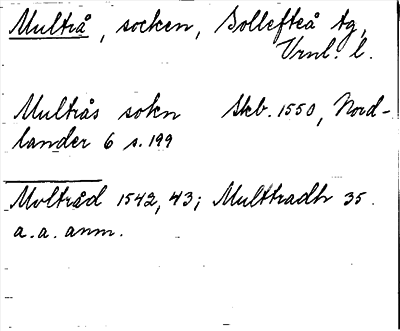 Multrå, socken, Sollefteå tg,
Vrnl. l.
Multrås sokn Skb. 1550, Nord-
lander 6 s. 199
Moltråd 1542, 43; Multtradh 35.
a. a. anm.